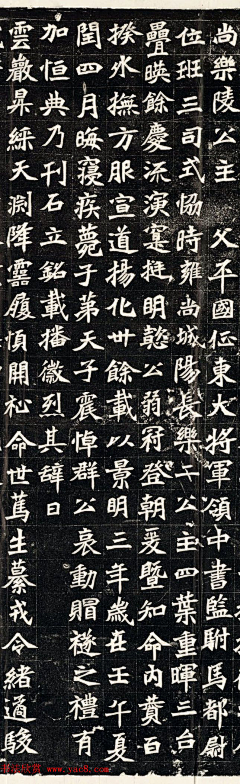 尚樂陵公主　父平國征東大將軍領中書監駙馬都尉
位班三司式協時雍尚城陽長樂二公主四葉重暉三台
疊暎餘慶流演蹇挺明懿公弱冠登朝爰暨知命內贊百
揆外撫方服宣道揚化卅餘載以景明三年歲在壬午夏
閏四月晦寢疾薨于苐天子震悼群公哀動賵襚之禮有
加恒典乃刊石立銘載播徽烈其辭曰
雲巖昇綵天淵降靈履順開祉命世篤生纂戎令緒遹駿